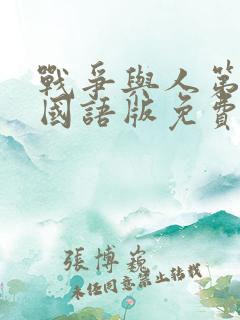 戰爭與人第
國語版免費
張博巍
未经同意禁止转载